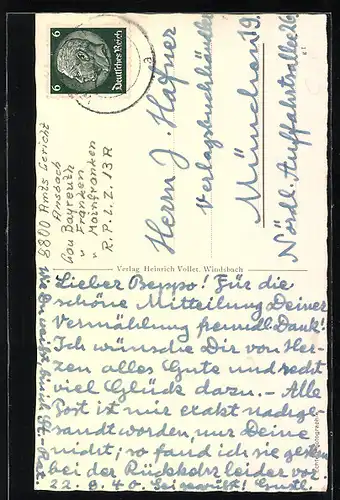 6 Deutsches Reich 6
Herrn J. Hafner
Verlagsbuchhändler
München 19.
Nördl. Auffahrtsallee 6
8800 Amts Gericht
Ansbach
Gau Bayreuth
" Franken
" Mainfranken
R.P.L.Z. 13 R
Verlag Heinrich Voller, Windsbach
Lieber Beppo! Für die
schöne Mitteilung Deiner
Vermählung freundl. Dank!
Ich wünsche Dir von Her-
zen alles Gute und recht
viel Glück dazu. – Alle
Post ist mir exakt nachge-
sandt worden, nur Deine
nicht; so fand ich sie gestern
bei der Rückkehr leider vor.
22. 8. 40. Sei gegrüßt!